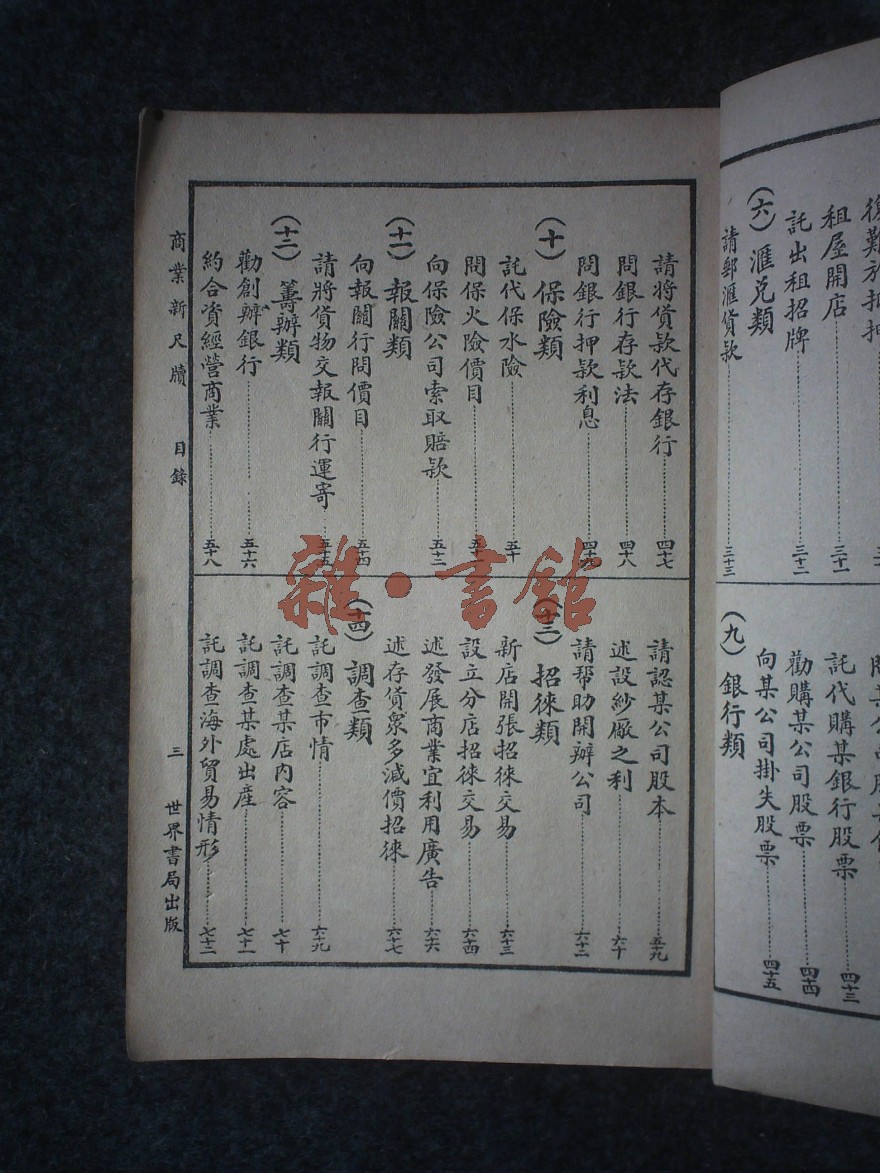 租屋開店⋯⋯三十一
託出租招牌⋯⋯三十二
(六)滙兌類
請郵滙貨款⋯⋯三十三
託代購某銀行股票⋯⋯四十三
勸購某公司股票⋯⋯四十四
向某公司掛失股票⋯⋯四十五
(九)銀行類
請將貨款代存銀行⋯⋯四十七
問銀行存款法⋯⋯四十八
問銀行押款利息⋯⋯四十九
(十)保險類
託代保水險⋯⋯五十
問保火險價目⋯⋯
向保險公司索取賠款⋯⋯五十二
(十一)報關類
向報關行問價目⋯⋯五十四
請將貨物交報關行運寄⋯⋯五十五
(十二)籌辦類
勸創辦銀行⋯⋯五十六
約合資經營商業⋯⋯五十八
請認某公司股本⋯⋯五十九
述設紗廠之利⋯⋯六十
請帮助開辦公司⋯⋯六十二
(十三)招徠類
新店開張招徠交易⋯⋯六十三
設立分店招徠交易⋯⋯六十四
述發展商業宜利用廣告⋯⋯六十六
述存貨衆多減價招徠⋯⋯六十七
(十四)調查類
託調查市情⋯⋯六十九
託調查某店內容⋯⋯七十
託調查某處出產⋯⋯七十一
託調查海外貿易情形⋯⋯七十二
商業新尺牘 目錄 三 世界書局出版
雜·書館